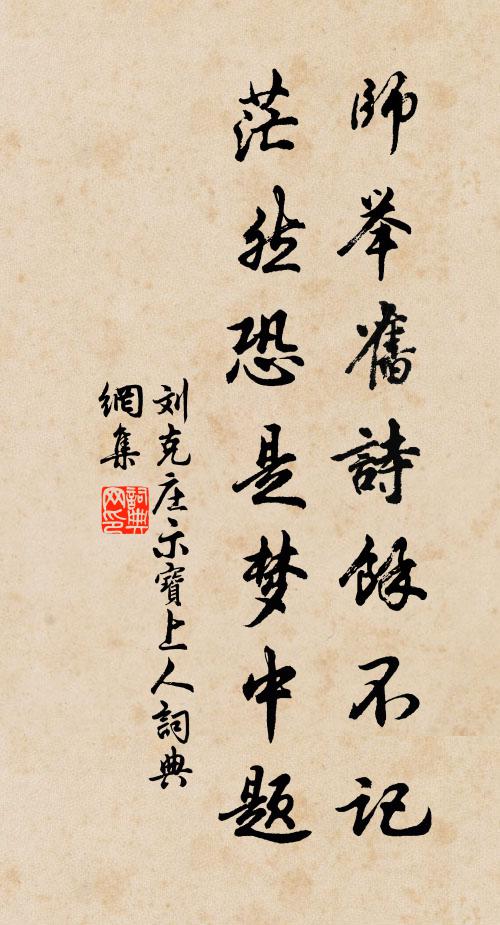 師举舊詩餘不记
茫然恐是梦中题
刘克庄示寶上人詞典
網集
詞典网印